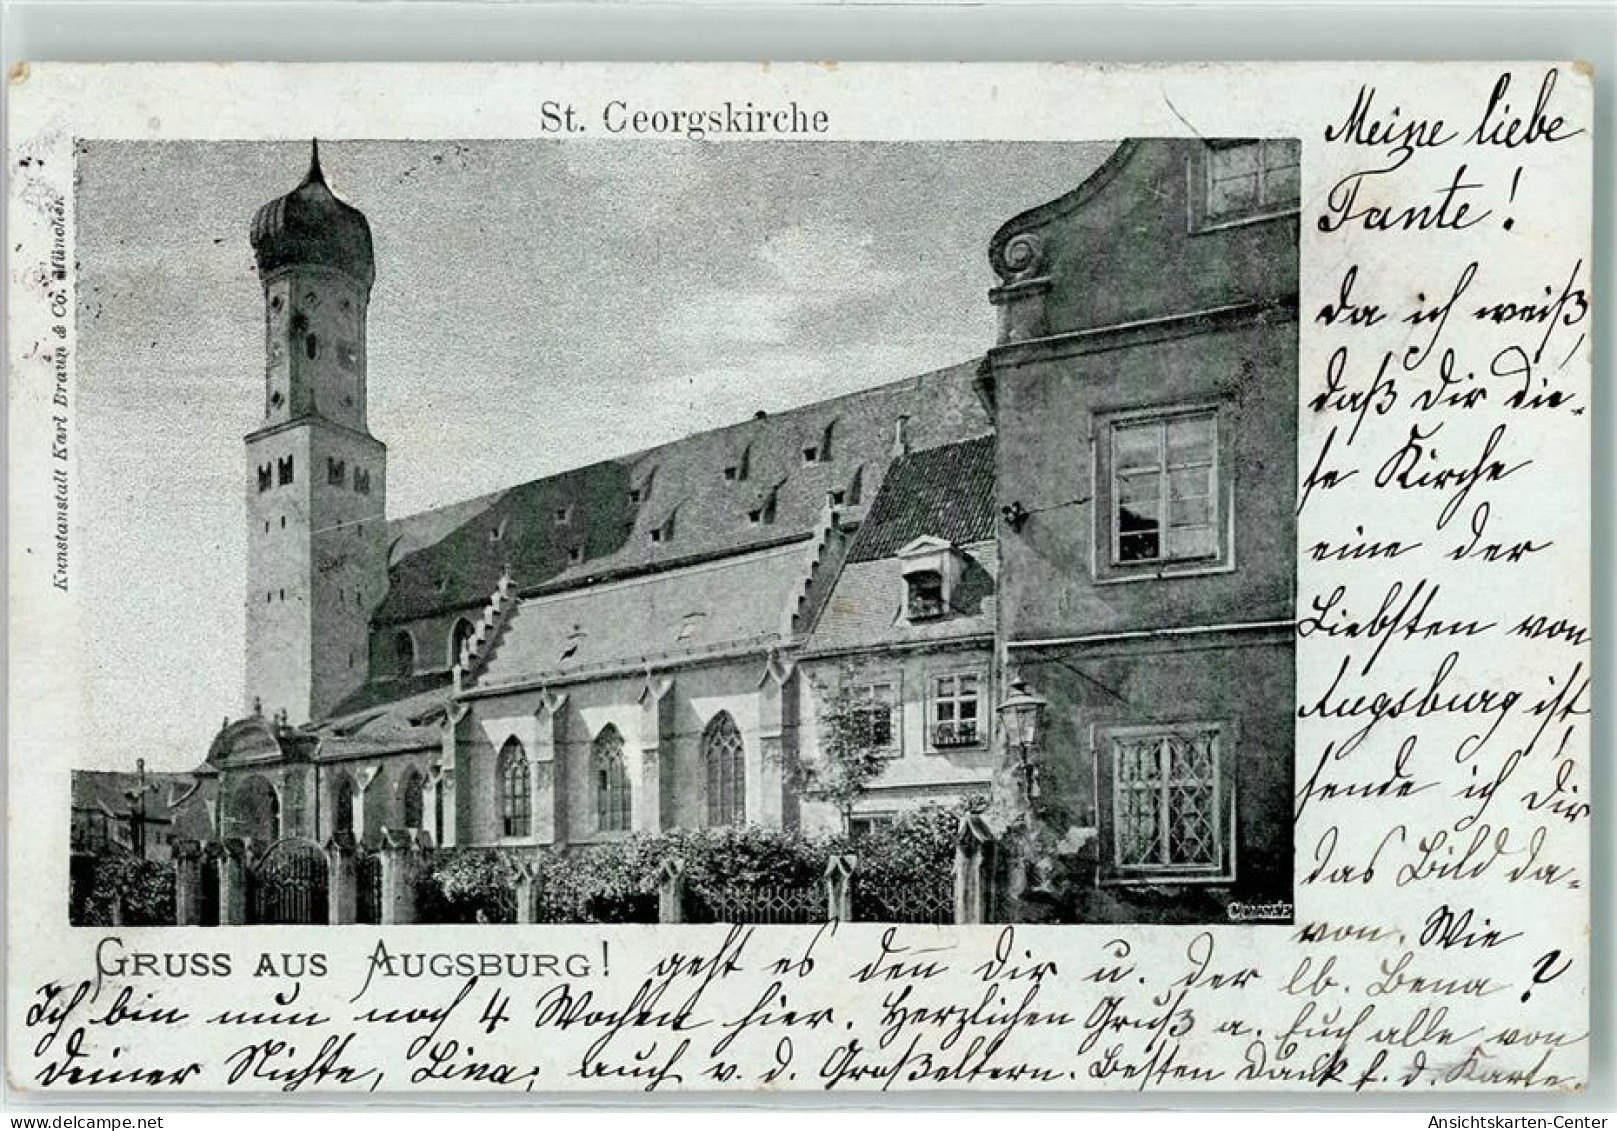 St. Georgskirche
Kunstanstalt Karl Braun & Co. München
Meine liebe
Tante!
Da ich weiß,
daß Dir die-
se Kirche
eine der
Liebsten von
Augsburg ist,
sende ich Dir
das Bild da-
von. Wie
GRUSS AUS AUGSBURG! geht es denn Dir u. der lb. Bena?
Ich bin nun noch 4 Wochen hier. Herzlichen Gruß a. Euch alle von
deiner Nichte, Lina; auch v. d. Großeltern. Besten Dank f. d. Karte.
Ansichtskarten-Center